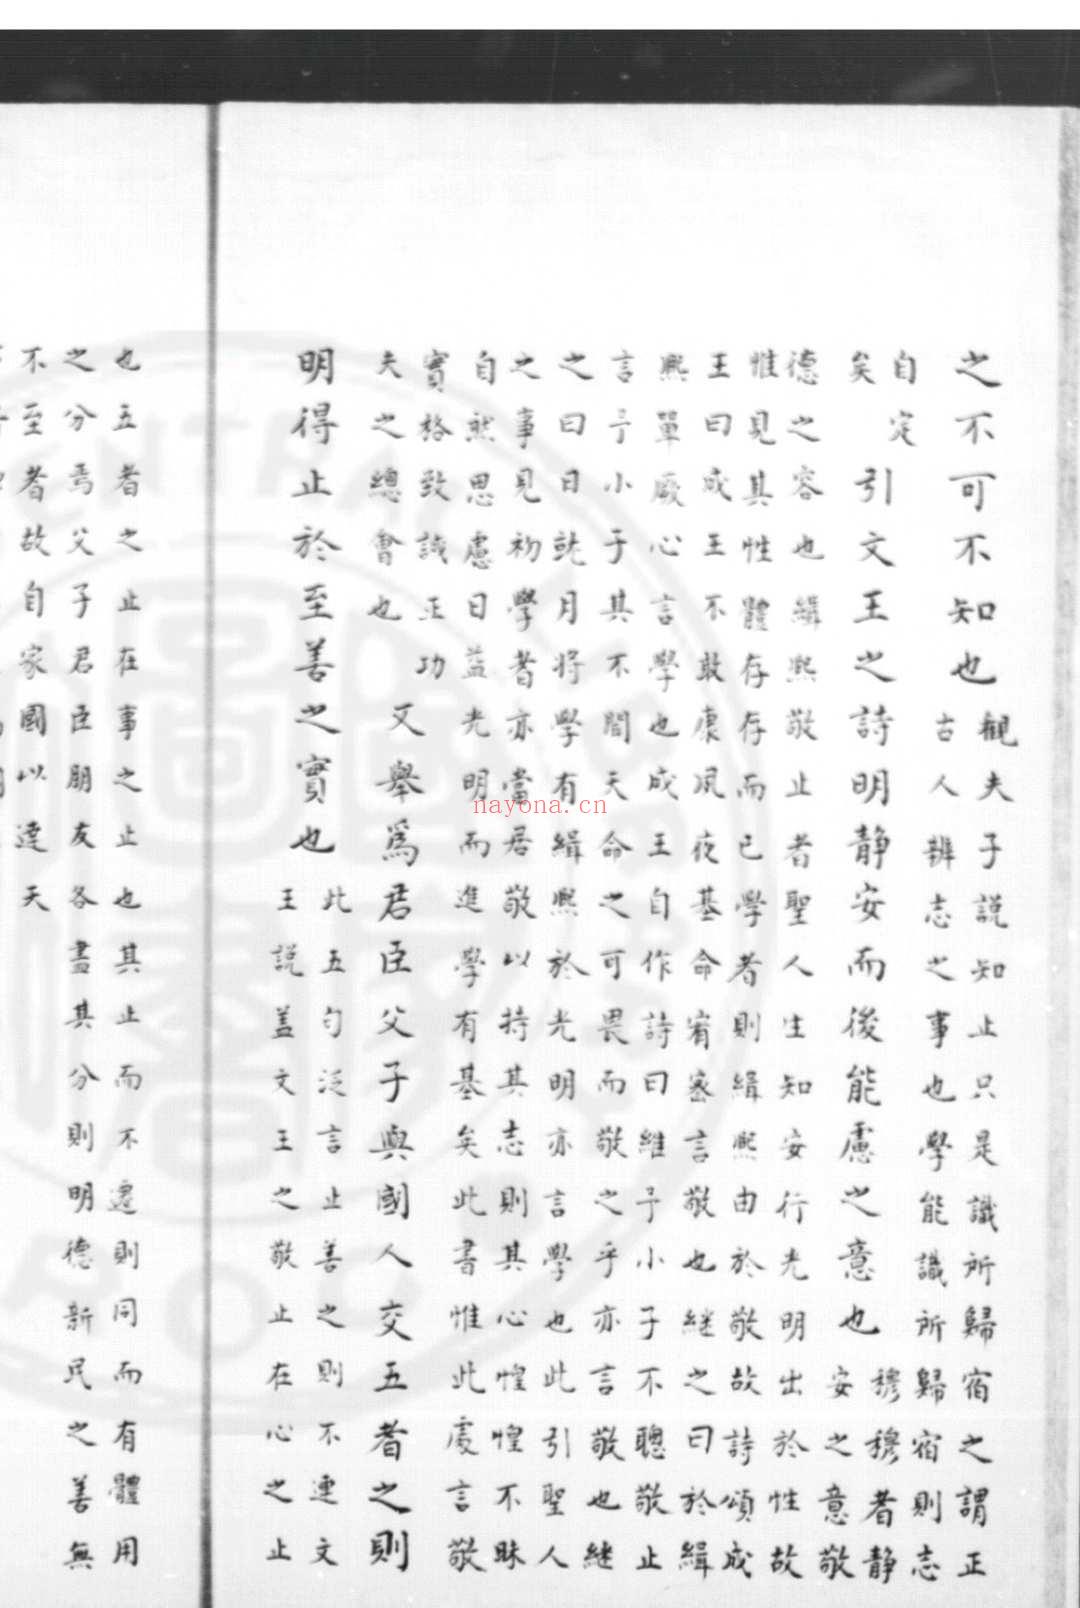 之不可不知也
觀夫子說知止只是識所歸宿之謂正
古人辨志之事也學能識所歸宿則志
自定
矣
引文王之詩明靜安而後能慮之意也
穆穆者靜
安之意敬
德之容也緝熙敬止者聖人生知安行光明出於性故
惟見其性體存存而已學者則緝熙由於敬故詩頌成
王曰成王不敢康夙夜基命宥密言敬也繼之曰於緝
熙單厥心言學也成王自作詩曰維予小子不聰敬止
言予小子其不閒天命之可畏而敬之乎亦言敬也繼
之曰日就月將學有緝熙於光明亦言學也此引聖人
之事見初學者亦當居敬以持其志則其心惶惶不昧
自然思慮日益光明而進學有基矣此書惟此處言敬
實格致誠正功
夫之總會也
又舉為君臣父子與國人交五者之則
明得止於至善之實也
此五句泛言止善之則不連文
王說蓋文王之敬止在心之止
也五者之止在事之止也其止而不遷則同而有體用
之分焉父子君臣朋友各盡其分則明德新民之善無
不至者故自家國以達天
nayona.cn